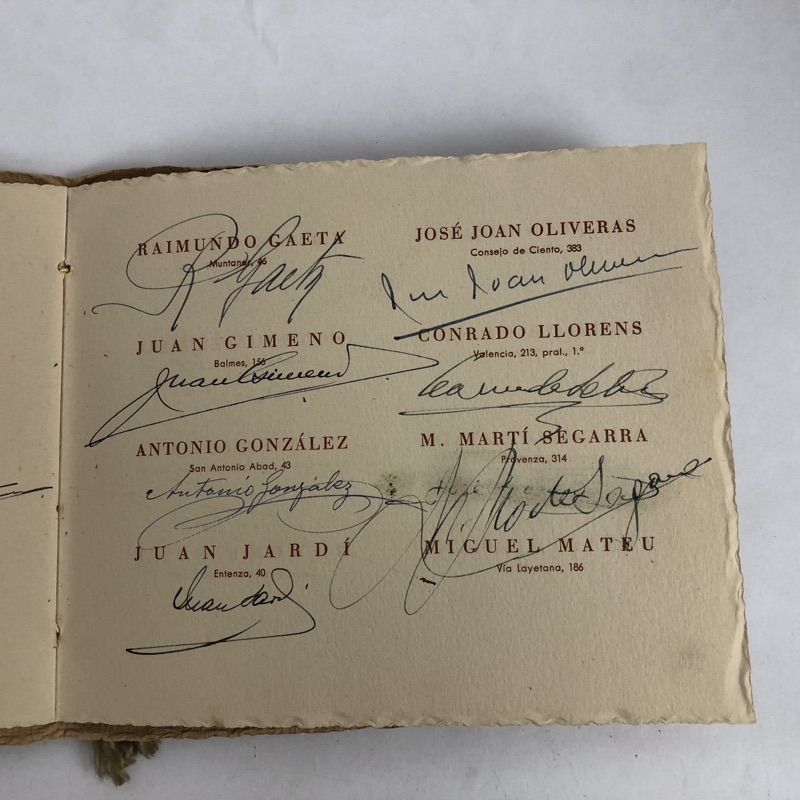 RAIMUNDO GAETA
Muntaner, 46
R Gaeta
JUAN GIMENO
Balmes, 156
Juan Gimeno
ANTONIO GONZÁLEZ
San Antonio Abad, 43
Antonio González
JUAN JARDÍ
Entenza, 40
Juan Jardí
JOSÉ JOAN OLIVERAS
Consejo de Ciento, 383
Joan Oliveras
CONRADO LLORENS
Valencia, 213, pral., 1.ª
M. MARTÍ SEGARRA
Provenza, 314
MIGUEL MATEU
Vía Layetana, 186